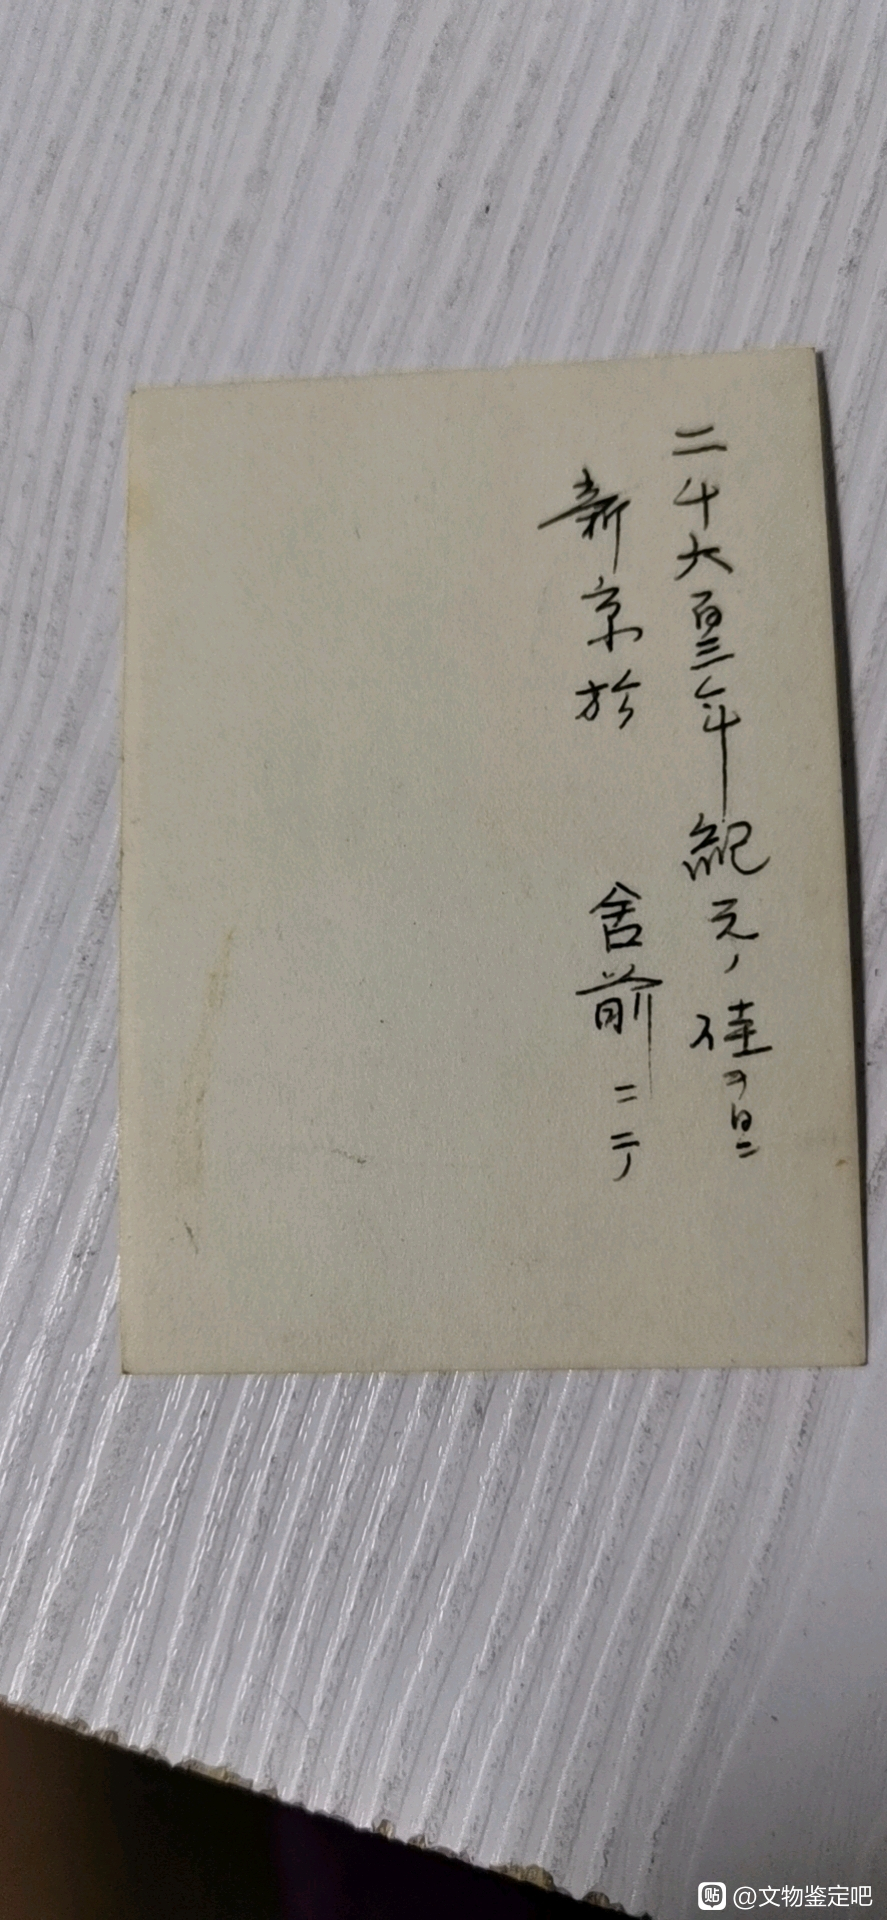 二千六百三年紀元ノ佳キ日ニ
新京於 舎前ニテ
@文物鉴定吧